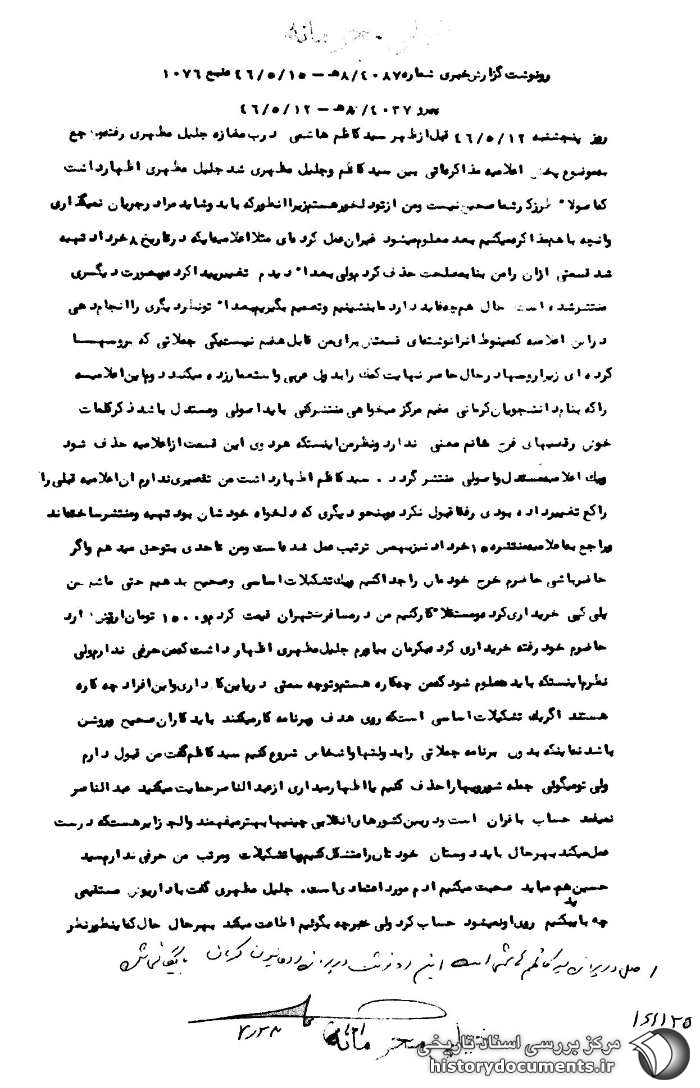 خیلی محرمانه
رونوشت گزارش خبری شماره ۸/۴۰۸۷ھ – ۴۶/۵/۱۵ منبع ۱۰۷۶
پیرو ۸/۴۰۳۷ھ – ۴۶/۵/۱۲
روز پنجشنبه ۴۶/۵/۱۲ قبل از ظهر سید کاظم هاشمی درب مغازه جلیل مظهری رفته و راجع
بموضوع پخش اعلامیه مذاکراتی بین سید کاظم و جلیل مظهری شد جلیل مظهری اظهار داشت
که اصولا" طرز کر شما صحیح نیست و من از تو دلخور هستم زیرا آنطور که باید و شاید مرا در جریان نمیگذاری
و آنچه با هم مذاکره میکنیم بعد معلوم میشود غیر آن عمل کرده‌ای مثلا اعلامیه‌ایکه در تاریخ ۸ خرداد تهیه
شد قسمتی از آن را من بنا بمصلحت حذف کردم ولی بعدا" دیدم تغییر پیدا کرده و بصورت دیگری
منتشر شده است حال هم چه فایده دارد ما بنشینیم و تصمیم بگیریم بعدا" تو نظر دیگری را انجام دهی
در این اعلامیه که مینوط آنرا نوشته‌ای قسمتش برای من قابل هضم نیست یکی جملاتی که بروسها
کرده‌ای زیرا روسها در حال حاضر نهایت کمک را بدول عربی و استعمار زده میکنند دوم این اعلامیه
را که بنام دانشجویان کرمانی مقیم مرکز میخواهی منتشر کنی باید اصولی و مستدل باشد ذکر کلمات
خوش رقصیهای فرح خانم معنی ندارد و نظر من اینستکه هر دوی این قسمت از اعلامیه حذف شود
و یک اعلامیه مستدل و اصولی منتشر گردد . سید کاظم اظهار داشت من تقصیری ندارم آن اعلامیه قبلی را
را که تغییر داده بودی رفقا قبول نکرده و بنحو دیگری که دلخواه خودشان بود تهیه و منتشر ساخته‌اند
و راجع به اعلامیه منتشره ۱۵ خرداد نیز بهمین ترتیب عمل شده است و من تا حدی بتو حق میدهم و اگر
حاضر باشی حاضرم خرج خودمان را جدا کنیم و یک تشکیلات اساسی و صحیح بدهیم حتی ماشین
پلی کپی خریداری کرده و مستقلا" کار کنیم من در مسافرت تهران قیمت کردم و ۱۵۰۰ تومان ارزش دارد
حاضرم خود رفته خریداری کرده بکرمان بیاورم جلیل مظهری اظهار داشت که من حرفی ندارم ولی
نظرم اینستکه باید معلوم شود که من چکاره هستم و تو چه سمتی در این کار داری و این افراد چه کاره
هستند اگر یک تشکیلات اساسی استکه روی هدف و برنامه کار میکنند باید کارمان صحیح و روشن
باشد نه اینکه بدون برنامه جملاتی را بدولتها و اشخاص شروع کنیم سید کاظم گفت من قبول دارم
ولی تو میگوئی جمله شورویها را حذف کنیم یا اظهار میداری از عبدالناصر حمایت میکنید عبدالناصر
نمیفهمد حساب با قرآن است و در بین کشورهای انقلابی چینیها بهتر میفهمند و الجزایر هستکه درست
عمل میکند بهر حال باید دوستان خودتان را متشکل کنیم و با تشکیلات و مرتب من حرفی ندارم سید
حسین هم میاید صحبت میکنیم آدم مورد اعتمادی است. جلیل مظهری گفت با داریوش مستقیمی
چه باید بکنیم روی او نمیشود حساب کرد ولی خیر چه بگوئیم اطاعت میکند بهر حال حال که اینطور نظر
اصل در پرونده سید کاظم هاشمی است این رونوشت در پرونده روحانیون کرمان بایگانی شود
۴/۲۸
خیلی محرمانه
مرکز بررسی اسناد تاریخی
historydocuments.ir